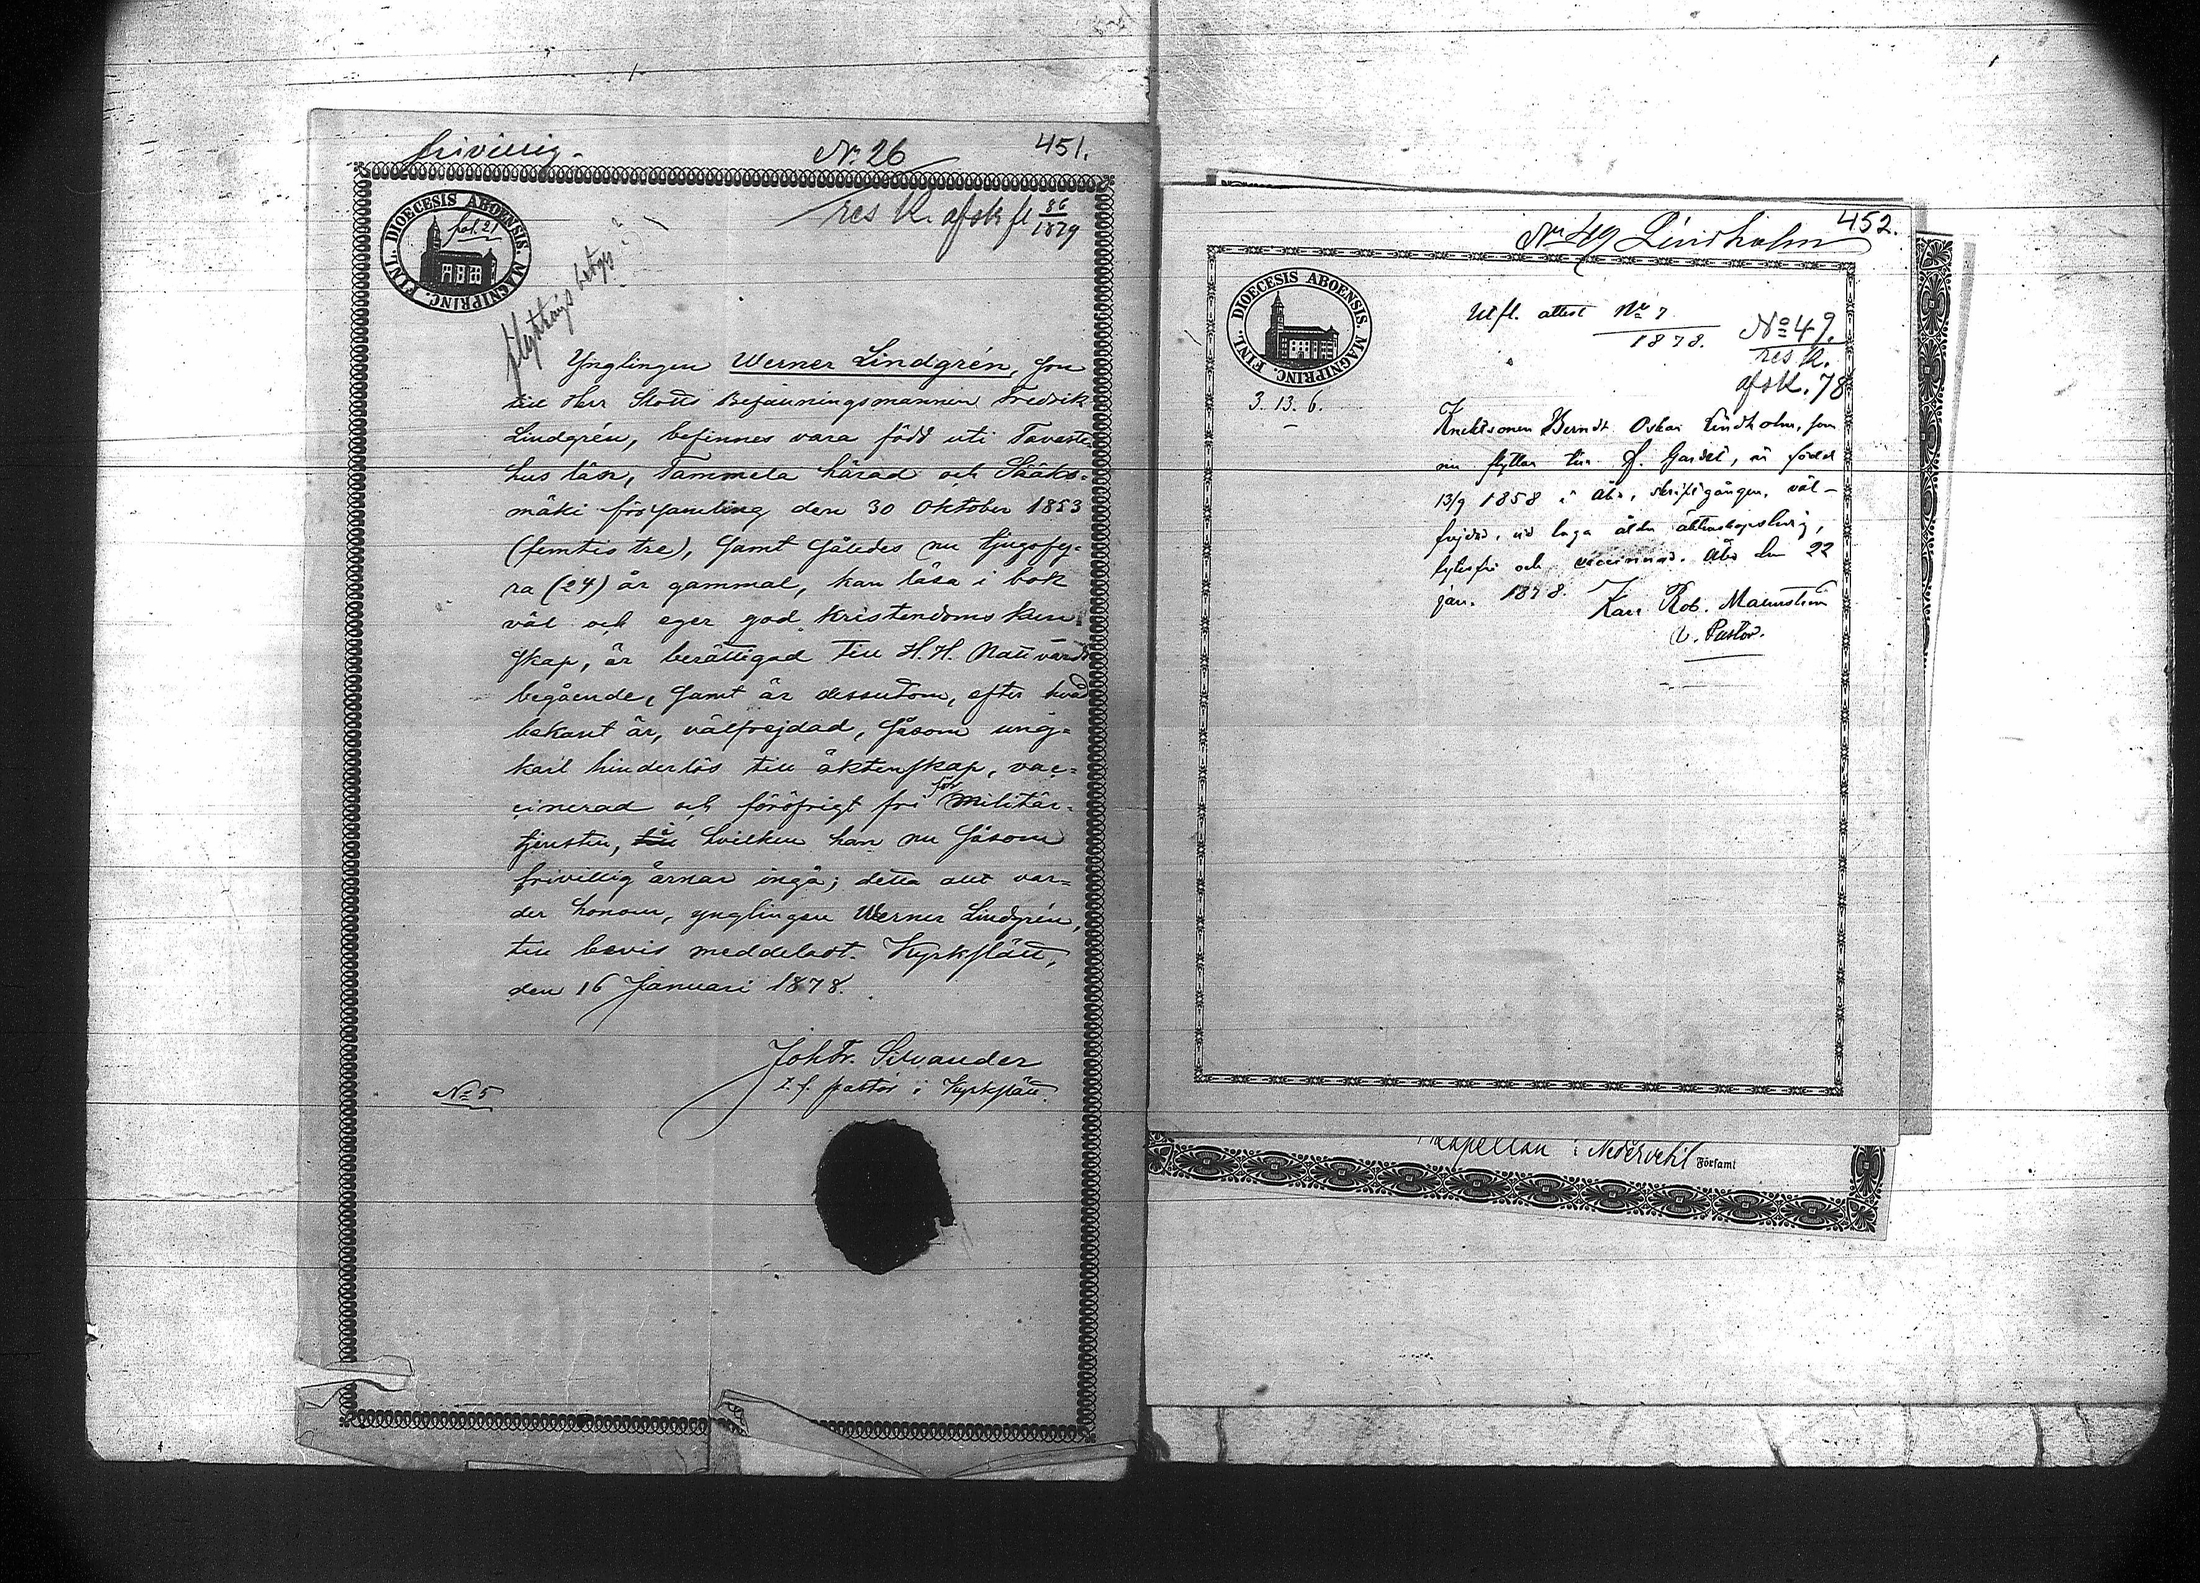 frivillig.
No 26
451.
DIOECESIS ABOENSIS. MAGNIPRINC. FINL.
fol. 21
res k. afsk fl 86/1879
flyttnings betyg?
Ynglingen Werner Lindgrén, son
till Herr Slotts Befallningsmannen Fredrik
Lindgrén, befinnes vara född uti Tavaste
hus län, Tammela härad och Sääks=
mäki församling den 30 Oktober 1853
(femtio tre), samt således nu tjugofy=
ra (24) år gammal, kan läsa i bok
väl och eger god kristendoms kun
skap, är berättigad till H. H. Nattvards
begående, samt är dessutom, efter hvad
bekant är, välfrejdad, såsom ung=
karl hinderlös till äktenskap, vac=
cinerad och föröfrigt fri för Militär=
tjensten, i hvilken han nu såsom
frivillig ärnar ingå; detta allt var=
der honom, ynglingen Werner Lindgrén,
till bevis meddeladt. Kyrkslätt,
den 16 Januari 1878.
Joh Fr. Silvander
t. f. pastor i Kyrkslätt.
No 5
452.
No 49 Lindholm
DIOECESIS ABOENSIS. MAGNIPRINC. FINL.
Utfl. attest No 7
1878.
No 49.
res k.
afsk. 78
3. 13. 6.
Knektsonen Berndt Oskar Lindholm, som
nu flyttar till F. Gardet, är född
13/9 1858 i Åbo, skriftgången, väl-
frejdad, vid laga ålder äktenskapsledig,
lytesfri och vaccinerad. Åbo den 22
jan. 1878.
Karl Rob. Malmström
v. Pastor.
Kapellan i Nedervetil Församl